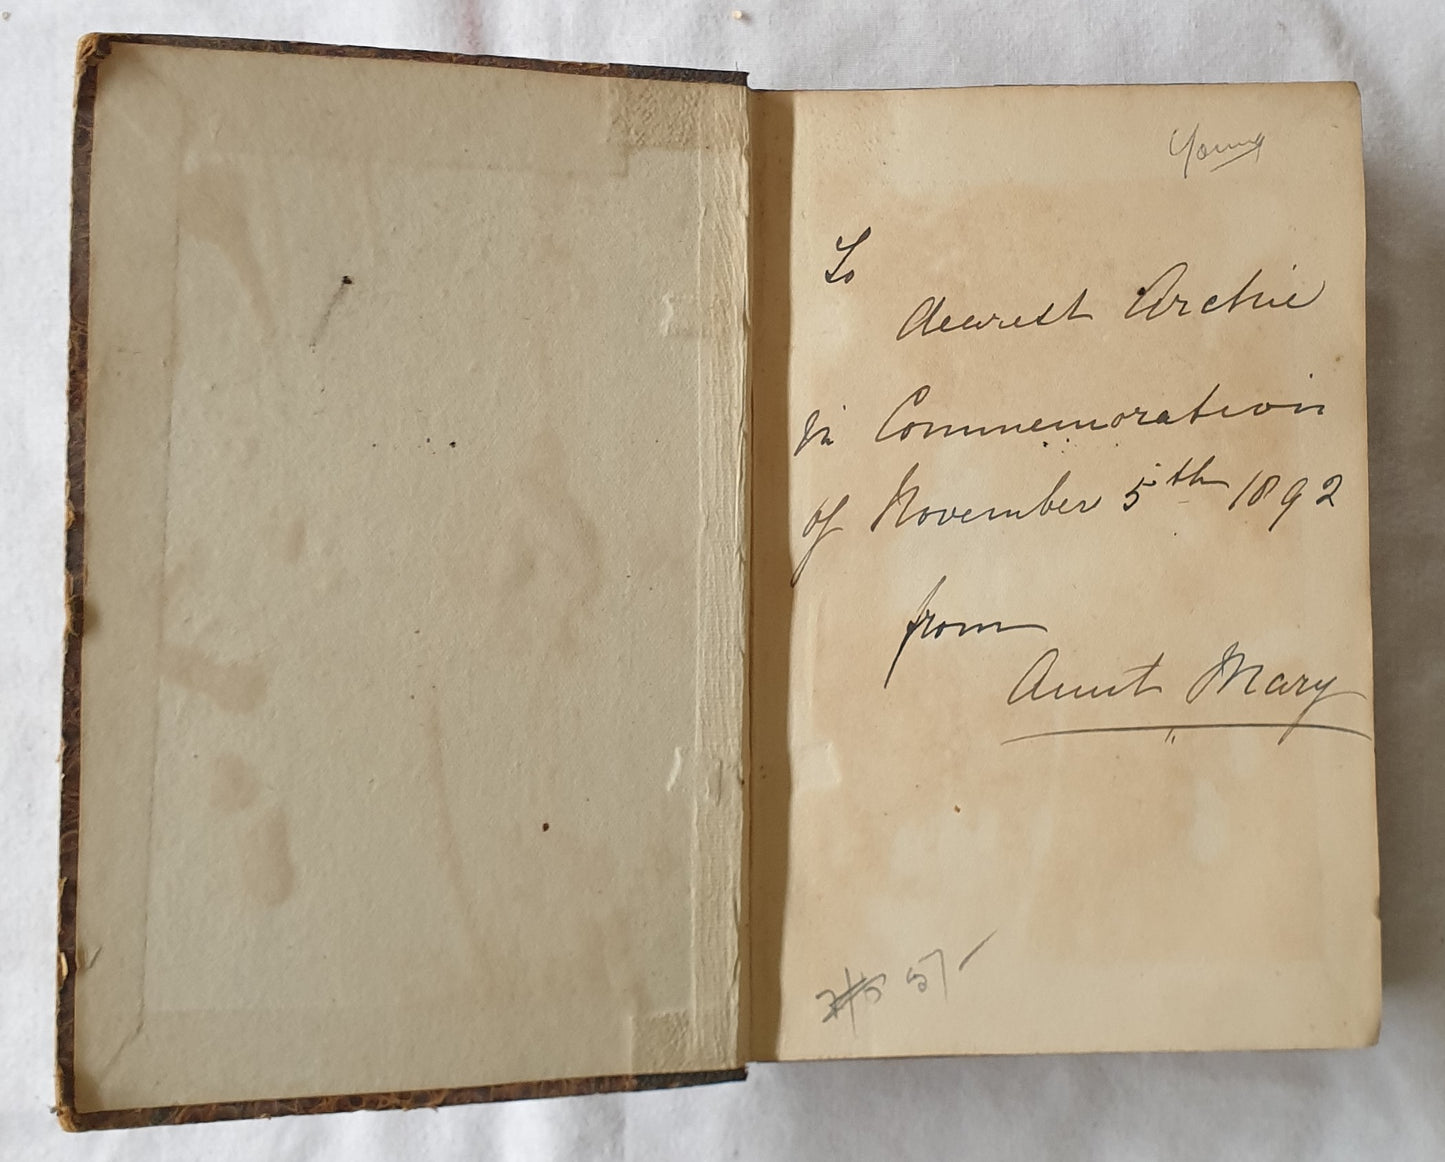 Young
To
dearest Archie
In Commemoration
of November 5th 1892
from
Aunt Mary
5/-